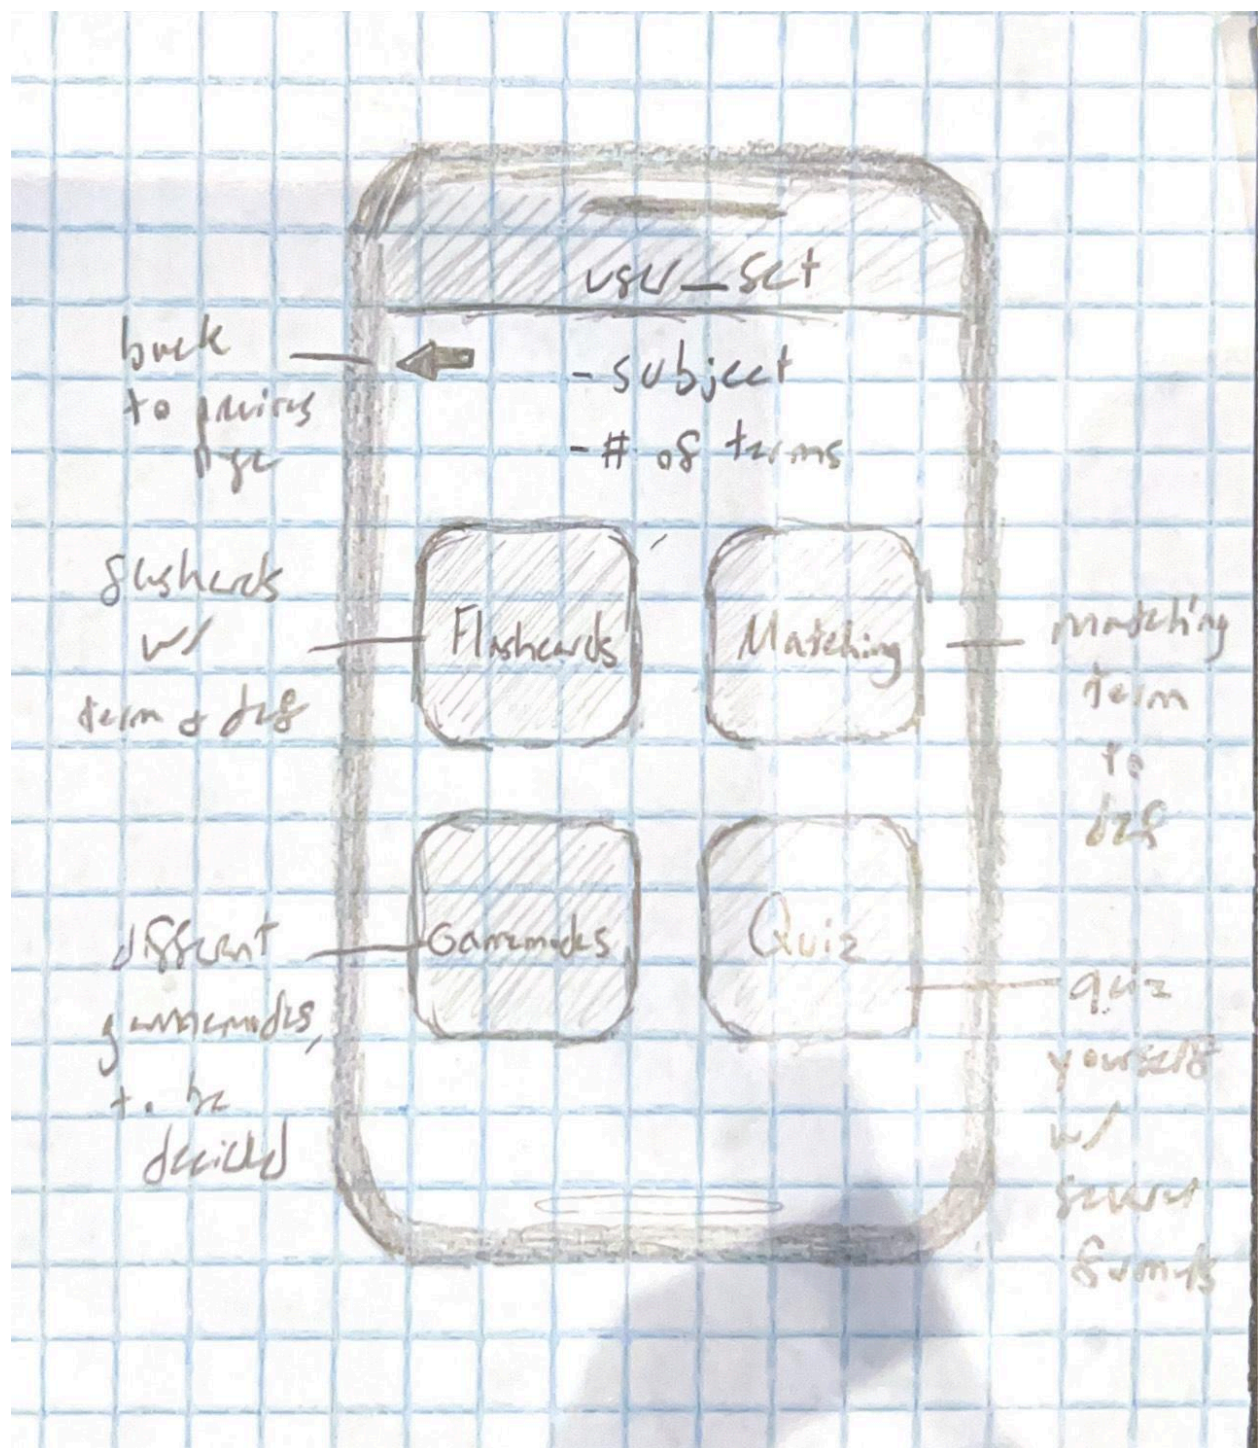 user_set
back
to previous
page
- subject
- # of terms
flashcards
w/
term & def
Flashcards
Matching
matching
term
to
def
different
gamemodes,
to be
decided
Gamemodes
Quiz
quiz
yourself
w/
several
formats